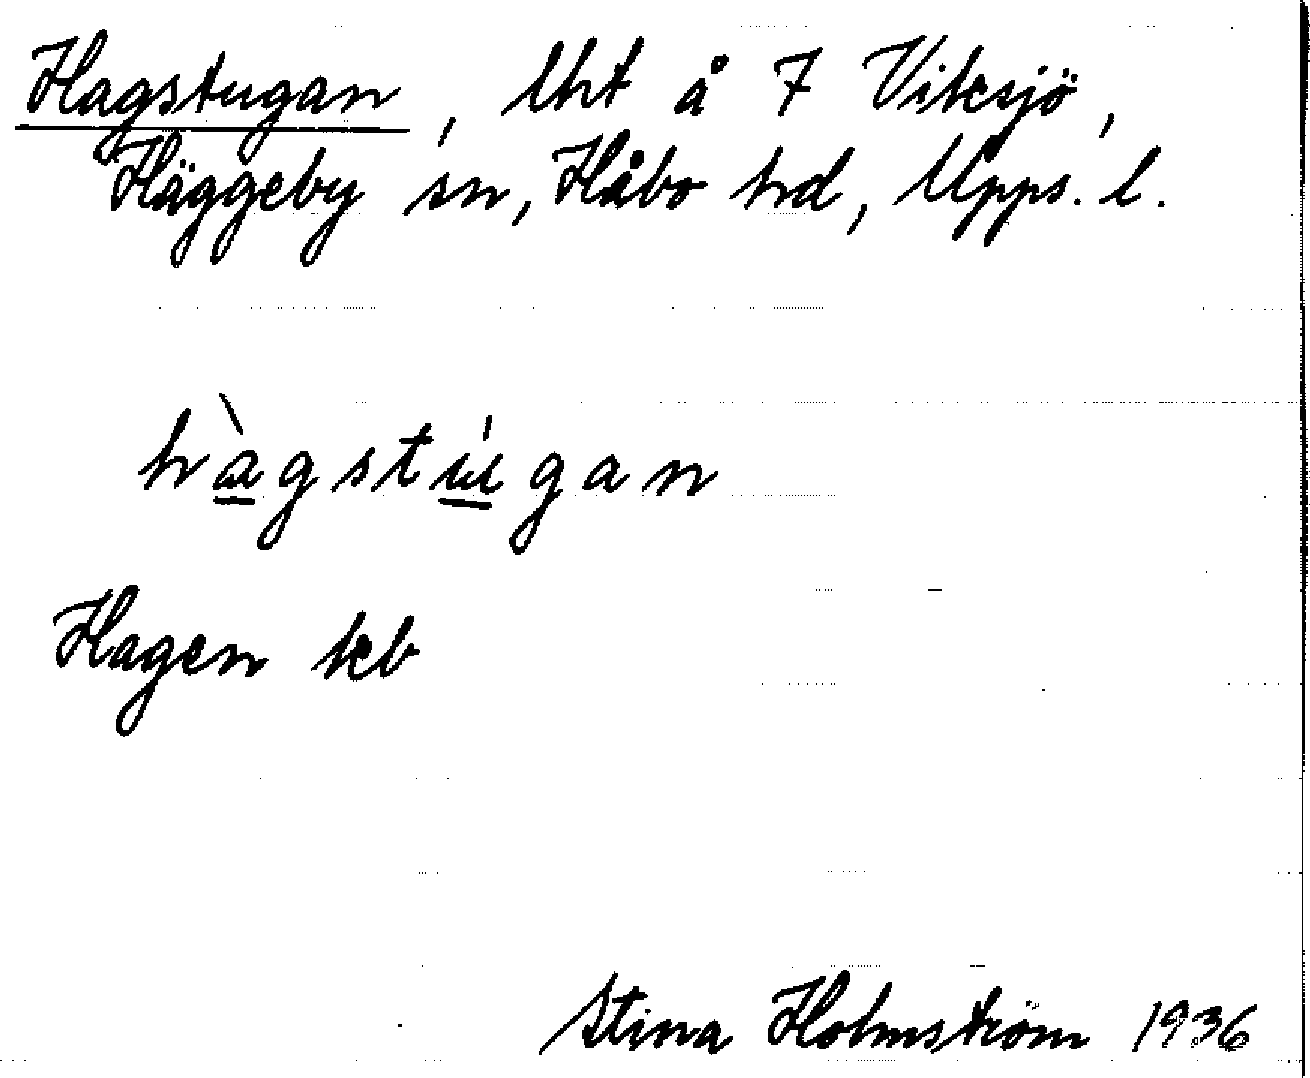 Hagstugan, lht å 7 Viksjö,
Häggeby sn, Håbo hd, Upps. l.
hàgstúgan
Hagen kb
Stina Holmström 1936